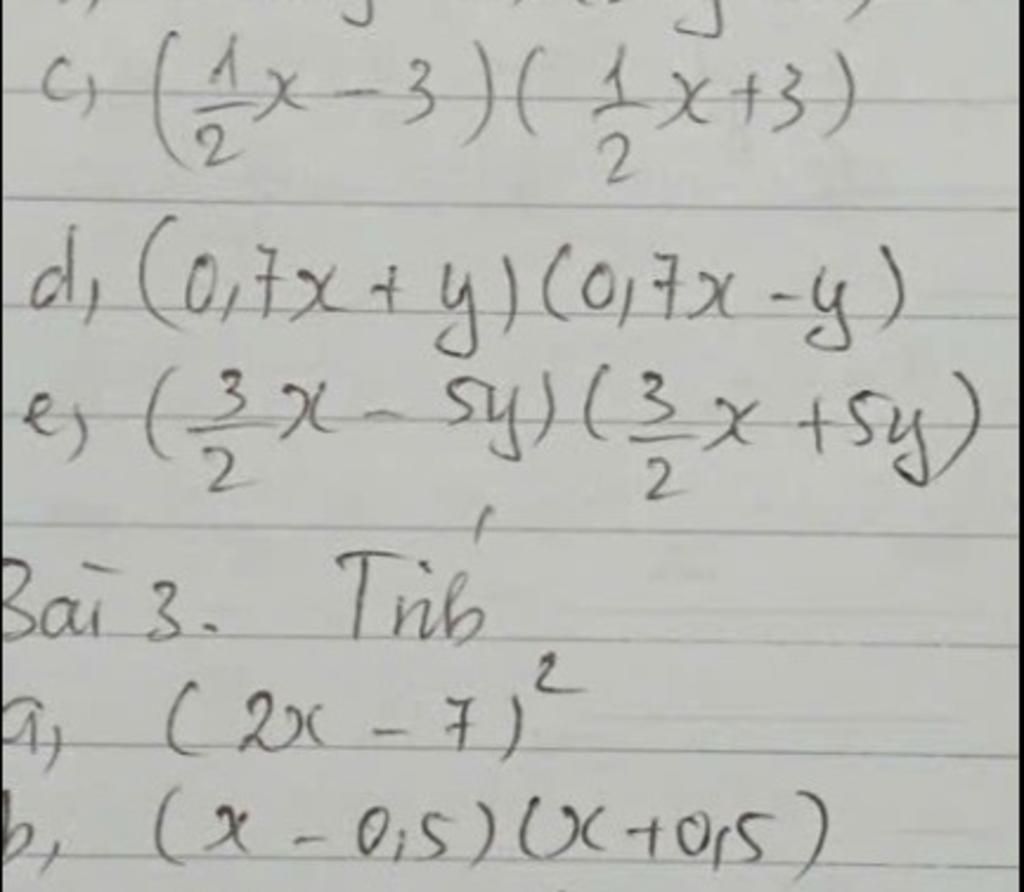 c, (1/2 x - 3)(1/2 x + 3)
d, (0,7x + y)(0,7x - y)
e, (3/2 x - 5y)(3/2 x + 5y)
Bài 3. Tính
a, (2x - 7)²
b, (x - 0,5)(x + 0,5)